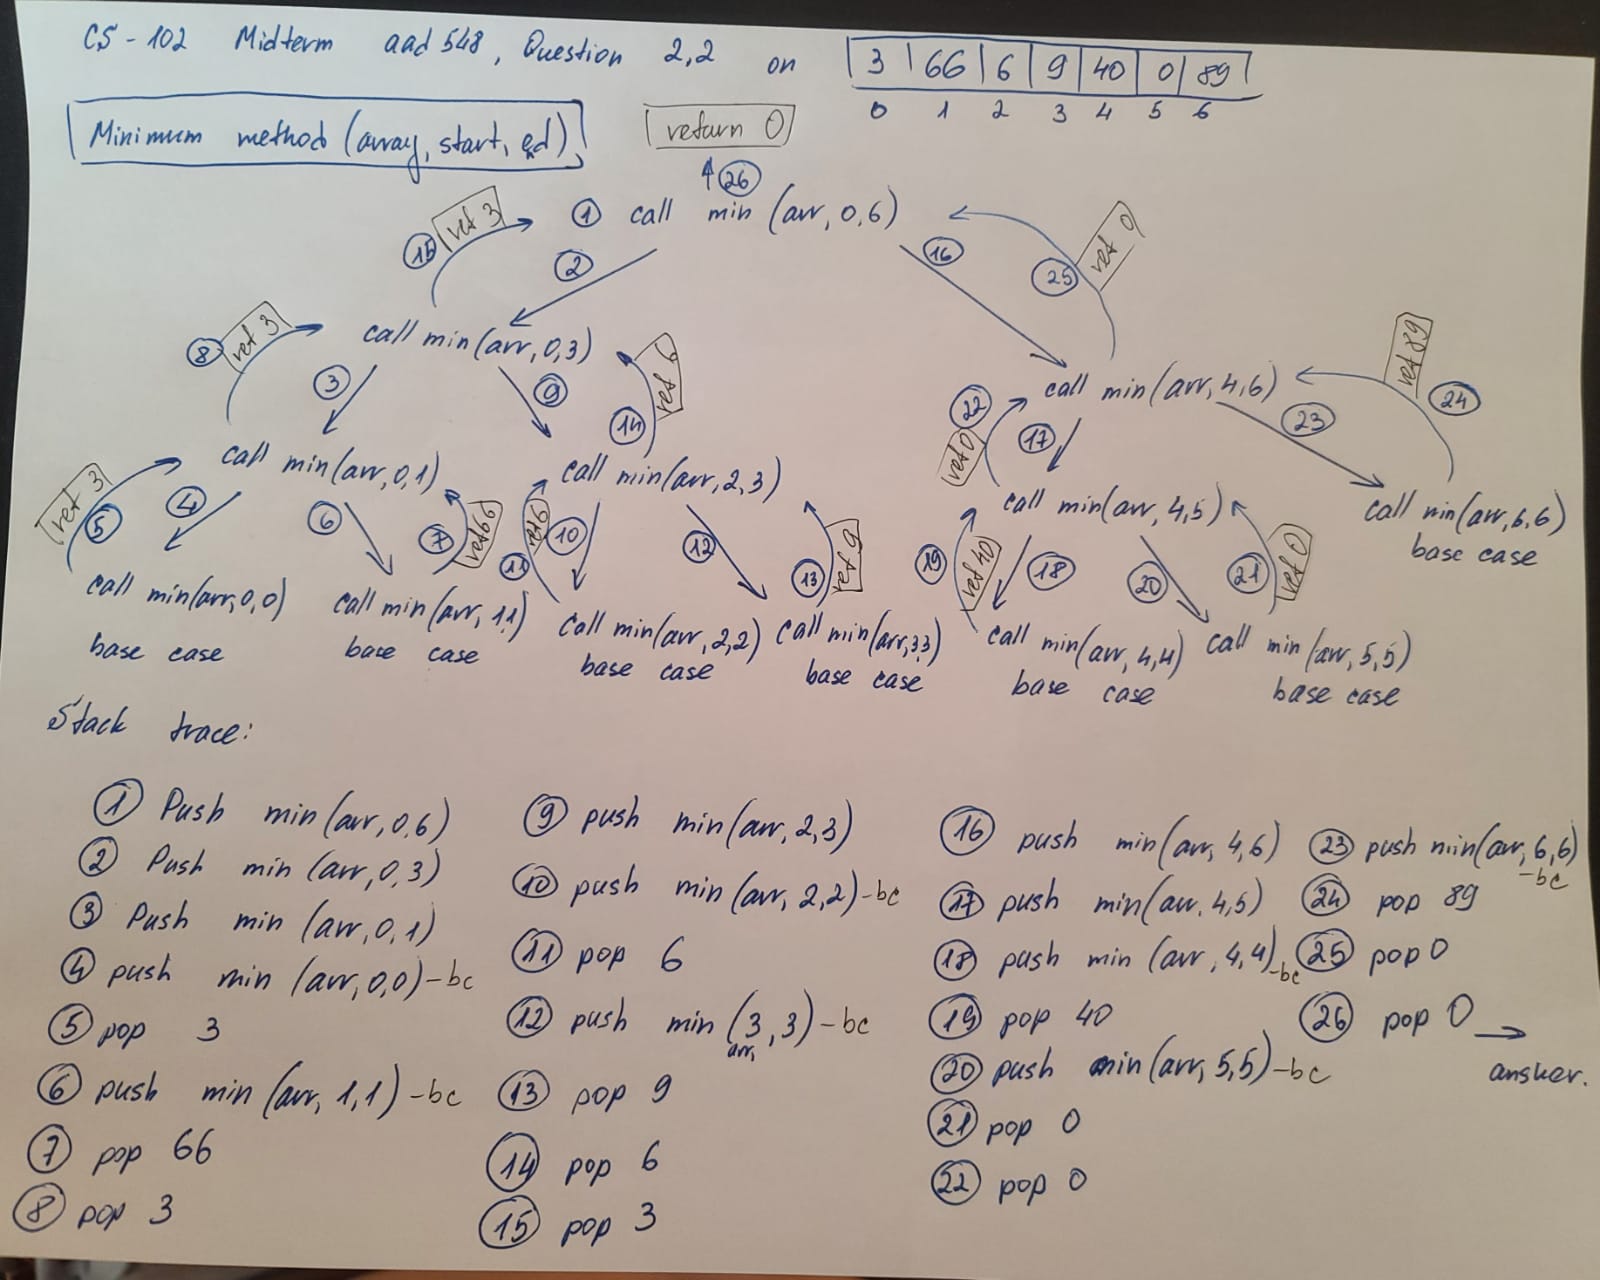 CS - 102 Midterm aad 548, Question 2,2 on 3 66 6 9 40 0 89
0 1 2 3 4 5 6
Minimum method (array, start, end)
return 0
26
15 ret 3 1 call min (arr, 0,6)
2 16 25 ret 0
8 ret 3 call min(arr, 0,3)
3 9 14 ret 6
call min(arr, 4,6) ret 89 24
22 ret 0 17 23
call min(arr, 0,1) call min(arr, 2,3)
call min(arr, 4,5) call min(arr, 6,6)
base case
ret 3 5 4 6 7 ret 66 11 ret 6 10 12 13 ret 9
19 ret 40 18 20 21 ret 0
call min(arr, 0,0) call min(arr, 1,1) call min(arr, 2,2) call min(arr, 3,3) call min(arr, 4,4) call min(arr, 5,5)
base case base case base case base case base case base case
Stack trace:
1 Push min (arr, 0,6)
2 Push min (arr, 0,3)
3 Push min (arr, 0,1)
4 push min (arr, 0,0) - bc
5 pop 3
6 push min (arr, 1,1) - bc
7 pop 66
8 pop 3
9 push min (arr, 2,3)
10 push min (arr, 2,2) - bc
11 pop 6
12 push min (3,3) - bc
arr,
13 pop 9
14 pop 6
15 pop 3
16 push min (arr, 4,6)
17 push min (arr, 4,5)
18 push min (arr, 4,4) - bc
19 pop 40
20 push min (arr, 5,5) - bc
21 pop 0
22 pop 0
23 push min (arr, 6,6)
- bc
24 pop 89
25 pop 0
26 pop 0 →
answer.